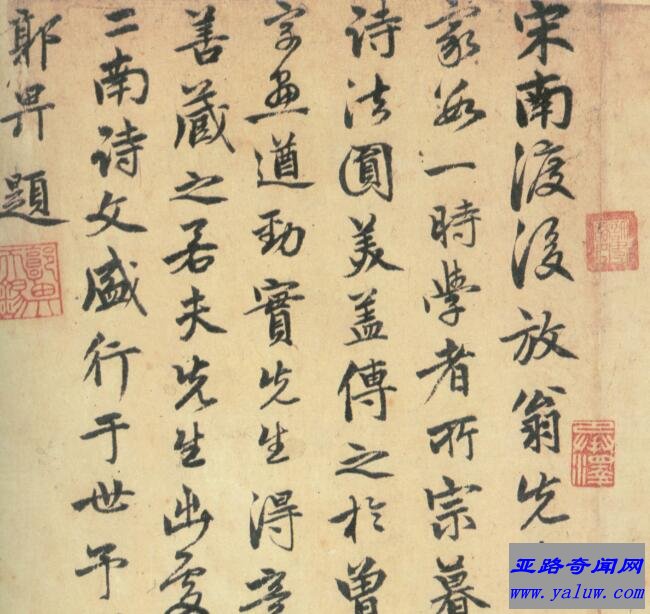 宋南渡後放翁先
家為一時學者所宗暮
詩法圓美蓋傳之於曾
字畫遒勁實先生得意
善藏之若夫先生出處
二南詩文盛行于世予
郭畀題
郭畀天錫
亚路奇闻网
www.yaluw.com